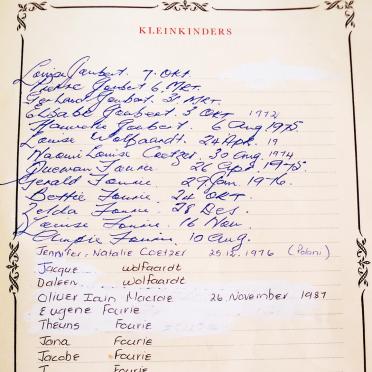 KLEINKINDERS
Louise Joubert. 7. OKT.
Joubert 6. MRT.
Gerhard Joubert. 31 MRT.
Elsabe Joubert. 3 OKT 1972
Hannetie Joubert. 6 Aug 1975.
Louise Wolfaardt. 24 Apr. 19
Naomi Louise Coetzer. 30 Aug. 1974
Fourie. 26 Sept. 1975.
Gerald Fourie. 29 Jan. 1976.
Bettie Fourie. 24 OKT
Zelda Fourie. 28 Des.
Louise Fourie. 16 Nov.
Fourie. 10 Aug.
Jennifer. Natalie Coetzer 25.12.1976 (Poloni)
Jacque Wolfaardt
Daleen Wolfaardt
Oliver Iain Macrae 26 November 1987
Eugene Fourie
Theuns Fourie
Jana Fourie
Jacobe Fourie